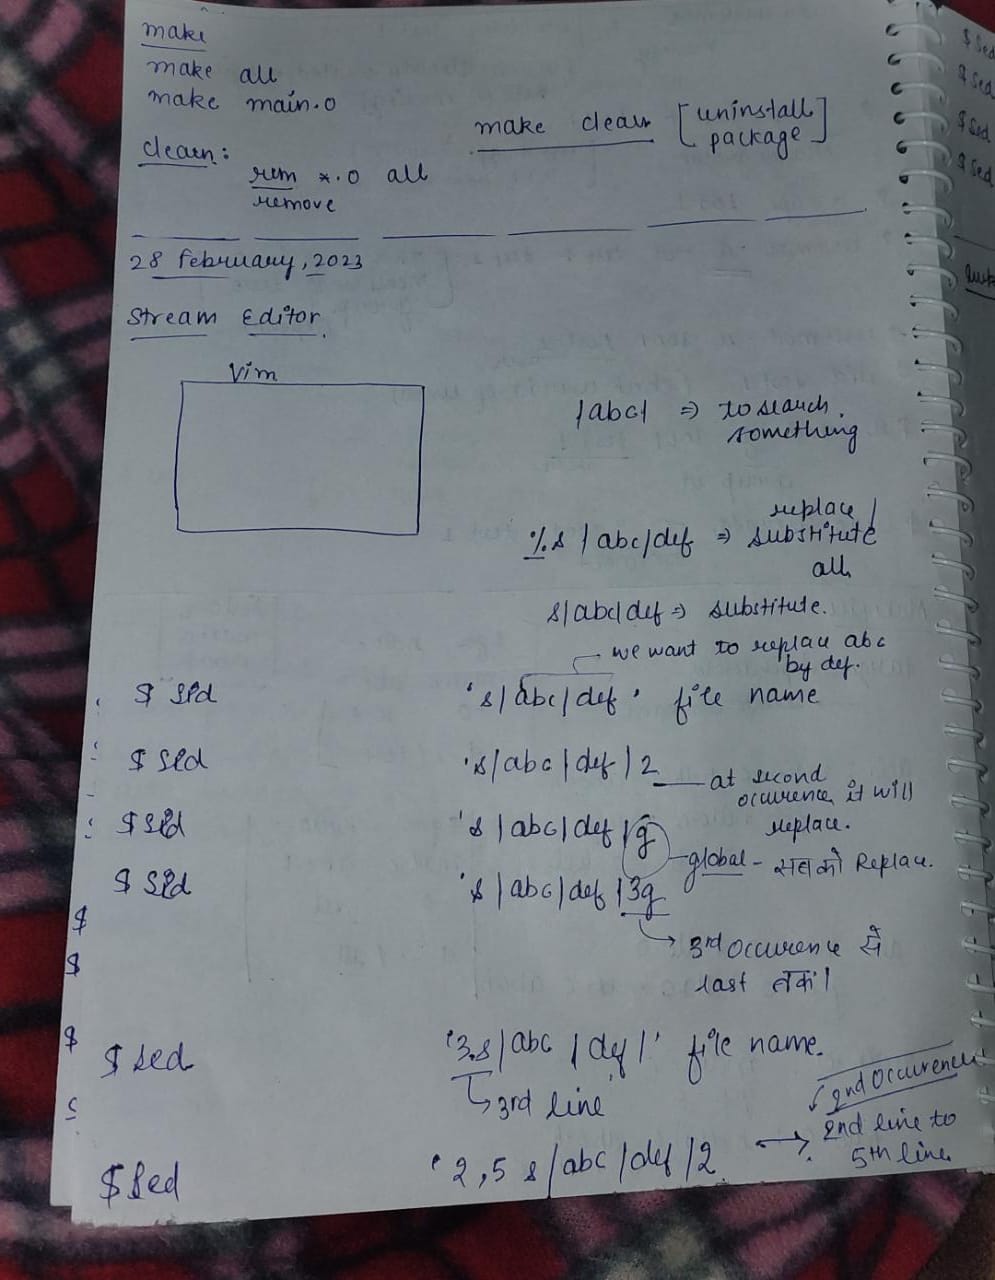 make
make all
make main.o
make clean [uninstall package]
clean:
rem *.o all
remove
28 february, 2023
Stream Editor.
Vim
/abc/ => to search something
%s/abc/def => replace/ substitute all
s/abc/def => substitute.
we want to replace abc by def.
$ sed 's/abc/def' file name
$ sed 's/abc/def/2 at second occurence it will replace.
$ sed 's/abc/def/g
global - सबको Replace.
$ sed 's/abc/def/3g
3rd occurence से last तक।
$
$
$
$ sed '3s/abc/def/' file name.
3rd line
2nd Occurence
$ sed '2,5 s/abc/def/2 → 2nd line to 5th line
$ Sed
$ Sed
$ Sed
$ Sed